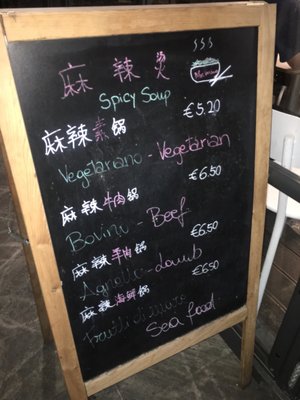 麻 辣 烫
Spicy Soup
麻辣素锅 €5.20
Vegetariano - Vegetarian
麻辣牛肉锅 €6.50
Bovino - Beef
麻辣羊肉锅 €6.50
Agnello - Lamb
麻辣海鲜锅 €6.50
Frutti di mare
Sea food